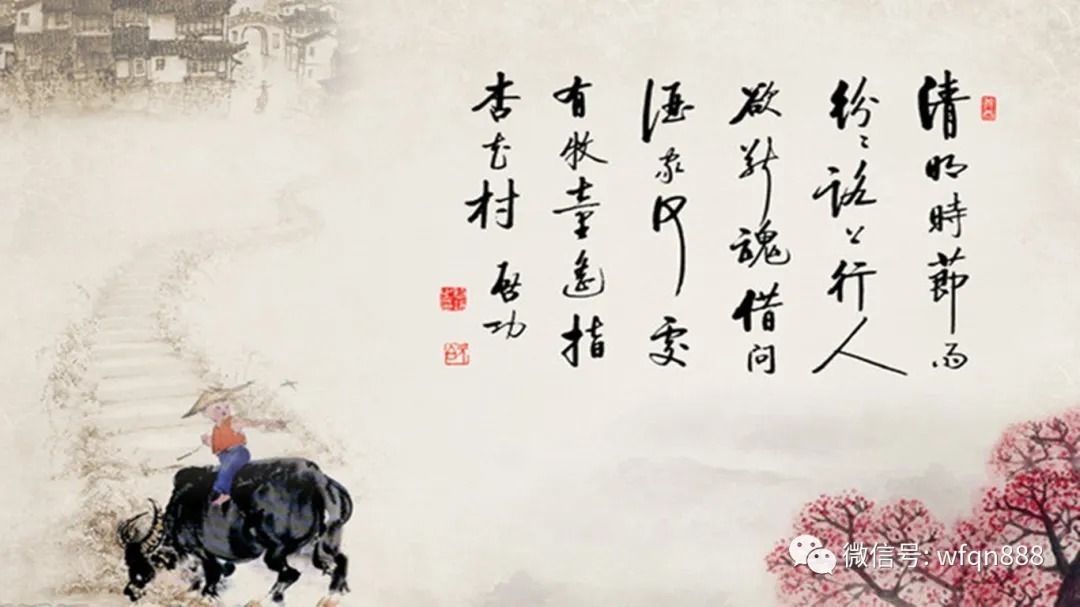 清明時節雨
紛〻路上行人
欲断魂借問
酒家何處
有牧童遙指
杏花村 啓功
微信号: wfqn888